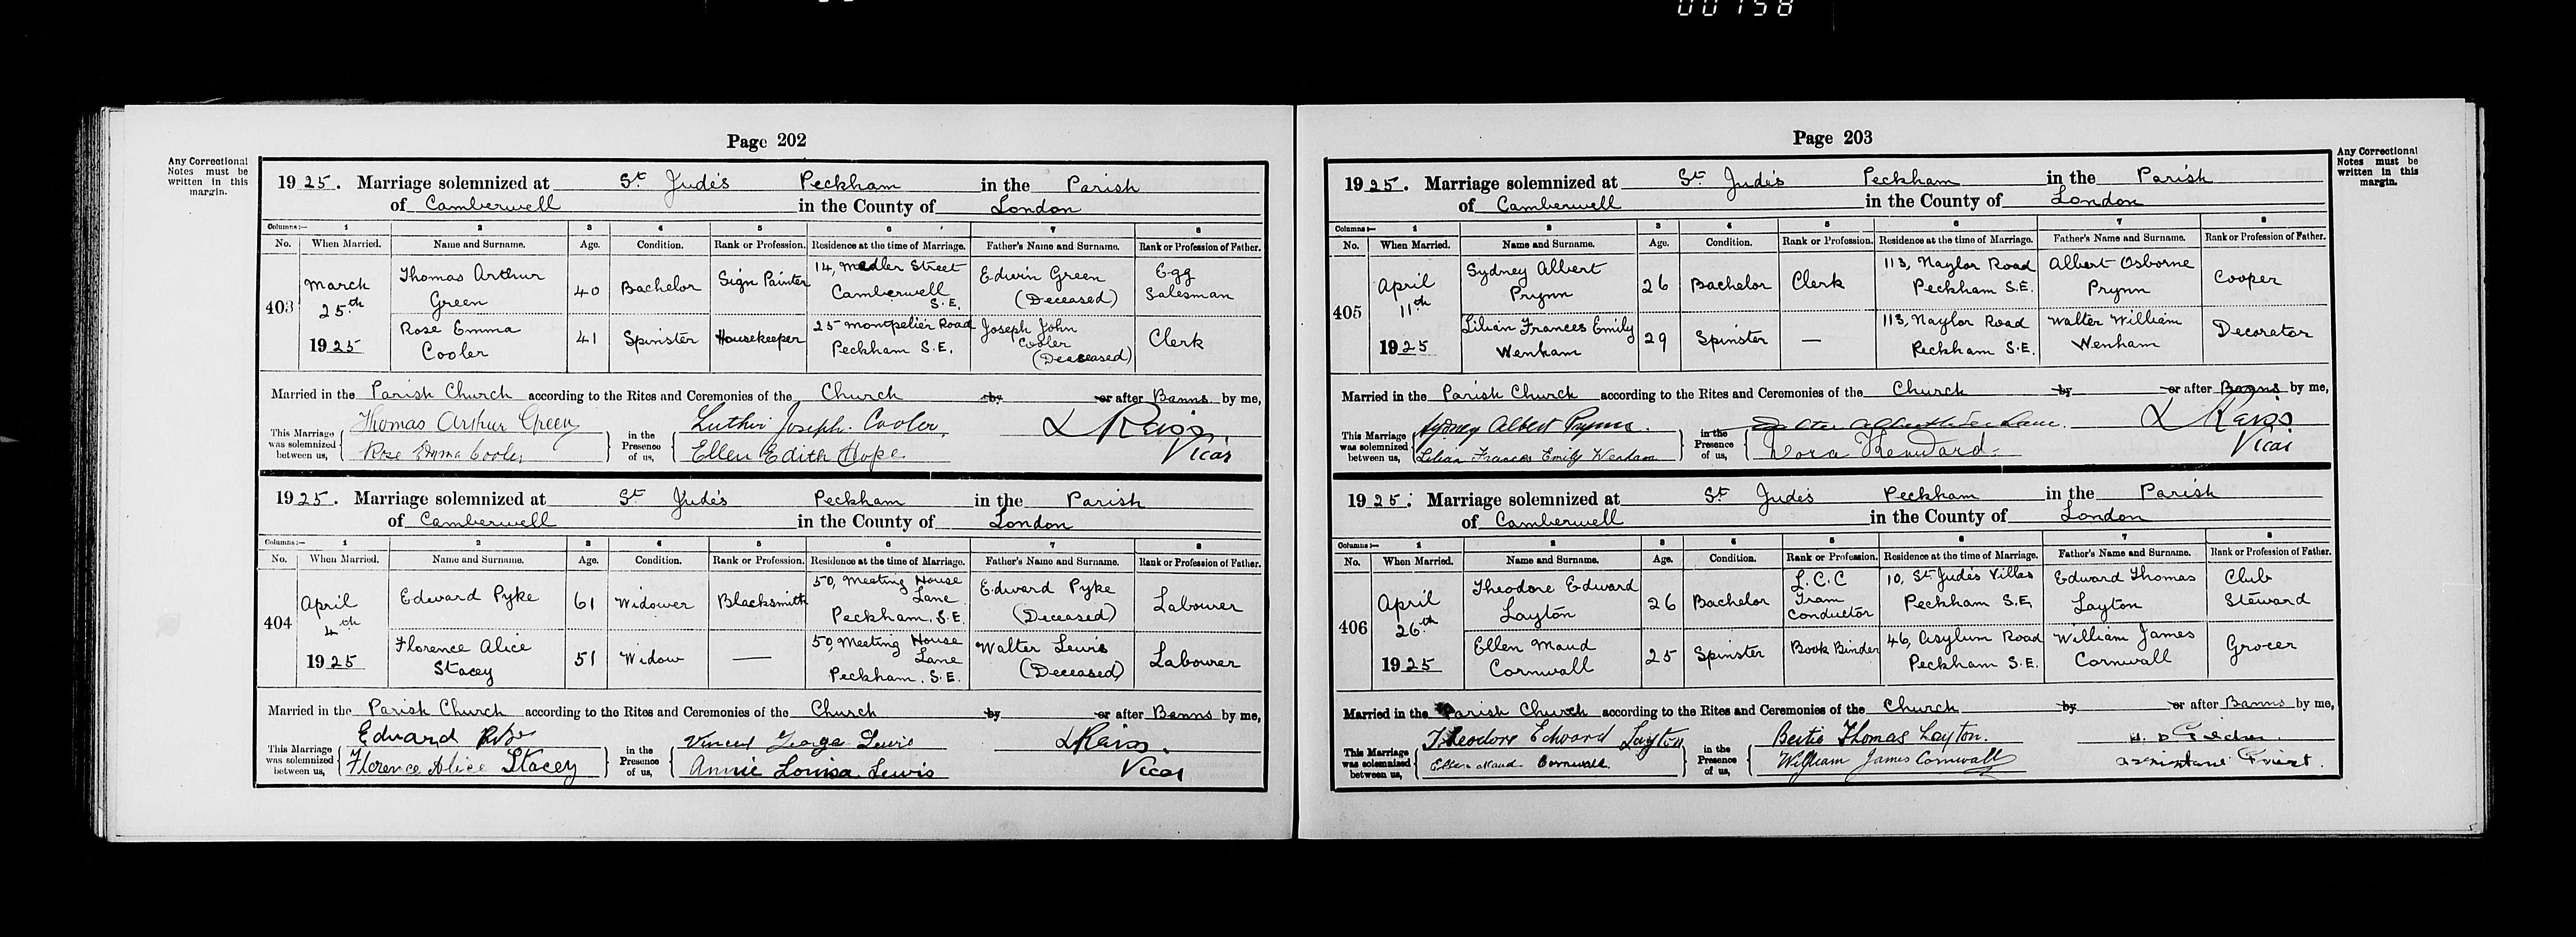 00758
Page 202
Any Correctional
Notes must be
written in this
margin.
1925. Marriage solemnized at St Jude's Peckham in the Parish
of Camberwell in the County of London
Columns:— 1 2 3 4 5 6 7 8
No. When Married. Name and Surname. Age. Condition. Rank or Profession. Residence at the time of Marriage. Father's Name and Surname. Rank or Profession of Father.
403
March
25th
1925
Thomas Arthur
Green
40
Bachelor
Sign Painter
14, Medler Street
Camberwell
S.E.
Edwin Green
(Deceased)
Egg
Salesman
Rose Emma
Cooler
41
Spinster
Housekeeper
25 Montpelier Road
Peckham S.E.
Joseph John
Cooler
(Deceased)
Clerk
Married in the Parish Church according to the Rites and Ceremonies of the Church by or after Banns by me,
This Marriage
was solemnized
between us,
Thomas Arthur Green
Rose Emma Cooler
in the
Presence
of us,
Luther Joseph Cooler.
Ellen Edith Hope
Vicar
1925. Marriage solemnized at St Jude's Peckham in the Parish
of Camberwell in the County of London
Columns:— 1 2 3 4 5 6 7 8
No. When Married. Name and Surname. Age. Condition. Rank or Profession. Residence at the time of Marriage. Father's Name and Surname. Rank or Profession of Father.
404
April
4th
1925
Edward Pyke
61
Widower
Blacksmith
50, Meeting House
Lane
Peckham. S.E.
Edward Pyke
(Deceased)
Labourer
Florence Alice
Stacey
51
Widow
—
50, Meeting House
Lane
Peckham. S.E.
Walter Lewis
(Deceased)
Labourer
Married in the Parish Church according to the Rites and Ceremonies of the Church by or after Banns by me,
This Marriage
was solemnized
between us,
Edward Pyke
Florence Alice Stacey
in the
Presence
of us,
Vincent George Lewis
Annie Louisa Lewis
Vicar
Page 203
Any Correctional
Notes must be
written in this
margin.
1925. Marriage solemnized at St Jude's Peckham in the Parish
of Camberwell in the County of London
Columns:— 1 2 3 4 5 6 7 8
No. When Married. Name and Surname. Age. Condition. Rank or Profession. Residence at the time of Marriage. Father's Name and Surname. Rank or Profession of Father.
405
April
11th
1925
Sydney Albert
Prynn
26
Bachelor
Clerk
113, Naylor Road
Peckham S.E.
Albert Osborne
Prynn
Cooper
Lilian Frances Emily
Wenham
29
Spinster
—
113, Naylor Road
Peckham S.E.
Walter William
Wenham
Decorator
Married in the Parish Church according to the Rites and Ceremonies of the Church by or after Banns by me,
This Marriage
was solemnized
between us,
Sydney Albert Prynn.
Lilian Frances Emily Wenham
in the
Presence
of us,
Dora
Vicar
1925. Marriage solemnized at St Jude's Peckham in the Parish
of Camberwell in the County of London
Columns:— 1 2 3 4 5 6 7 8
No. When Married. Name and Surname. Age. Condition. Rank or Profession. Residence at the time of Marriage. Father's Name and Surname. Rank or Profession of Father.
406
April
26th
1925
Theodore Edward
Layton
26
Bachelor
L.C.C
Tram
Conductor
10, St Jude's Villas
Peckham S.E.
Edward Thomas
Layton
Club
Steward
Ellen Maud
Cornwall
25
Spinster
Book Binder
46, Asylum Road
Peckham S.E.
William James
Cornwall
Grocer
Married in the Parish Church according to the Rites and Ceremonies of the Church by or after Banns by me,
This Marriage
was solemnized
between us,
Theodore Edward Layton
Ellen Maud Cornwall.
in the
Presence
of us,
Bertie Thomas Layton.
William James Cornwall
Assistant Priest.